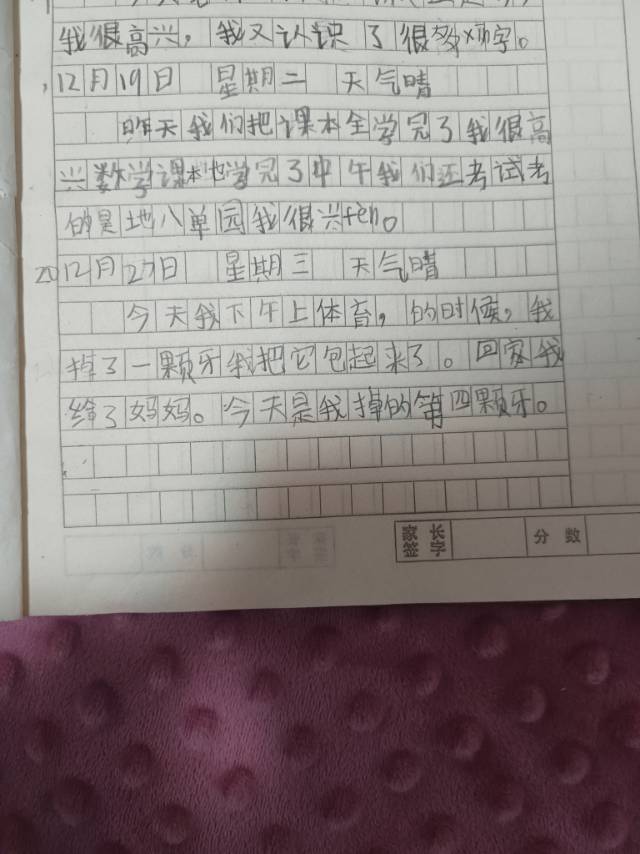 我很高兴，我又认识了很多汉字。
12月19日 星期二 天气晴
昨天我们把课本全学完了我很高
兴数学课本也学完了中午我们还考试考
的是地八单园我很兴fèn。
12月27日 星期三 天气晴
今天我下午上体育，的时候，我
掉了一颗牙我把它包起来了。回家我
给了妈妈。今天是我掉的第四颗牙。
家长签字 分数